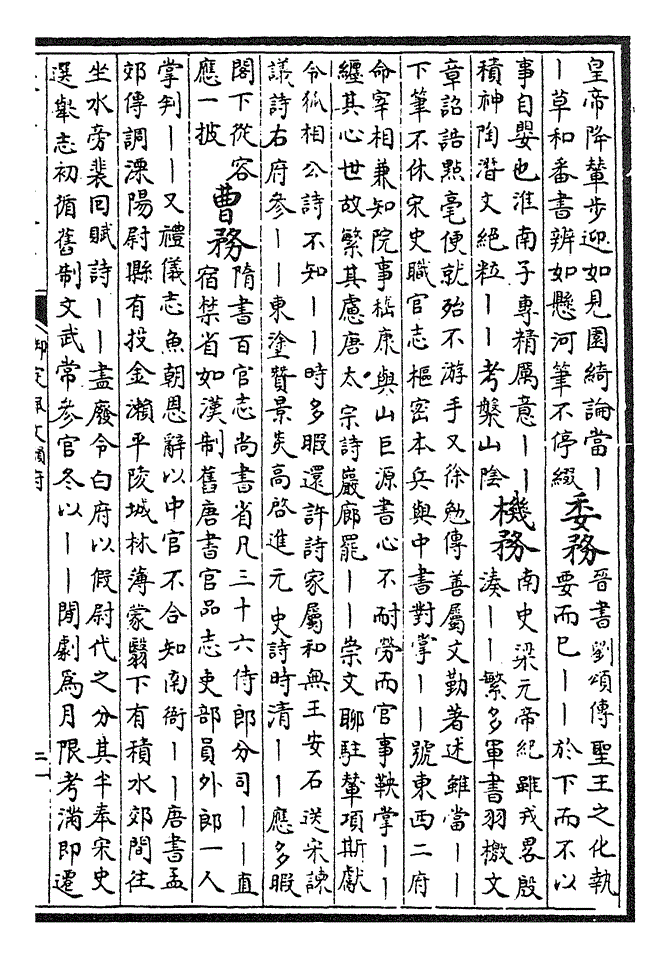 皇帝降輦步迎如見園綺論當丨
丨草和番書辨如懸河筆不停綴
委務
晉書劉頌傳聖王之化執
要而已丨丨於下而不以
事自嬰也淮南子專精厲意丨丨
積神陶潛文絕粒丨丨考槃山陰
機務
南史梁元帝紀雖戎畧殷
湊丨丨繁多軍書羽檄文
章詔誥點毫便就殆不游手又徐勉傳善屬文勤著述雖當丨丨
下筆不休宋史職官志樞密本兵與中書對掌丨丨號東西二府
命宰相兼知院事嵇康與山巨源書心不耐勞而官事鞅掌丨丨
纏其心世故繁其慮唐太宗詩巖廊罷丨丨崇文聊駐輦項斯獻
令狐相公詩不知丨丨時多暇還許詩家屬和無王安石送宋諫
議詩右府參丨丨東塗贊景炎高啓進元史詩時清丨丨應多暇
閣下從容
應一披
曹務
隋書百官志尚書省凡三十六侍郎分司丨丨直
宿禁省如漢制舊唐書官品志吏部員外郎一人
掌判丨丨又禮儀志魚朝恩辭以中官不合知南衙丨丨唐書孟
郊傳調溧陽尉縣有投金瀨平陵城林薄蒙翳下有積水郊間往
坐水旁裴回賦詩丨丨盡廢令白府以假尉代之分其半奉宋史
選舉志初循舊制文武常參官各以丨丨閒劇爲月限考滿即遷